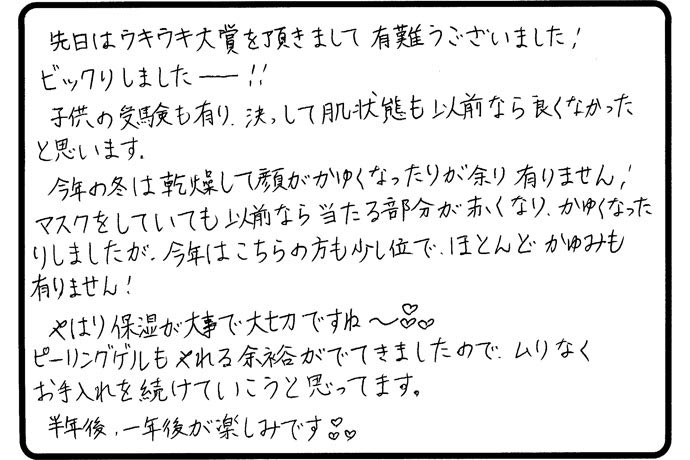 先日はウキウキ大賞を頂きまして有難うございました!
ビックリしましたー!!
子供の受験も有り、決っして肌状態も以前なら良くなかった
と思います。
今年の冬は乾燥して顔がかゆくなったりが余り有りません!
マスクをしていても以前なら当たる部分が赤くなり、かゆくなった
りしましたが、今年はこちらの方も少し位で、ほとんどかゆみも
有りません!
やはり保湿が大事で大切ですね〜♡♡♡
ピーリングゲルもやれる余裕がでてきましたので、ムリなく
お手入れを続けていこうと思ってます。
半年後、一年後が楽しみです♡♡♡